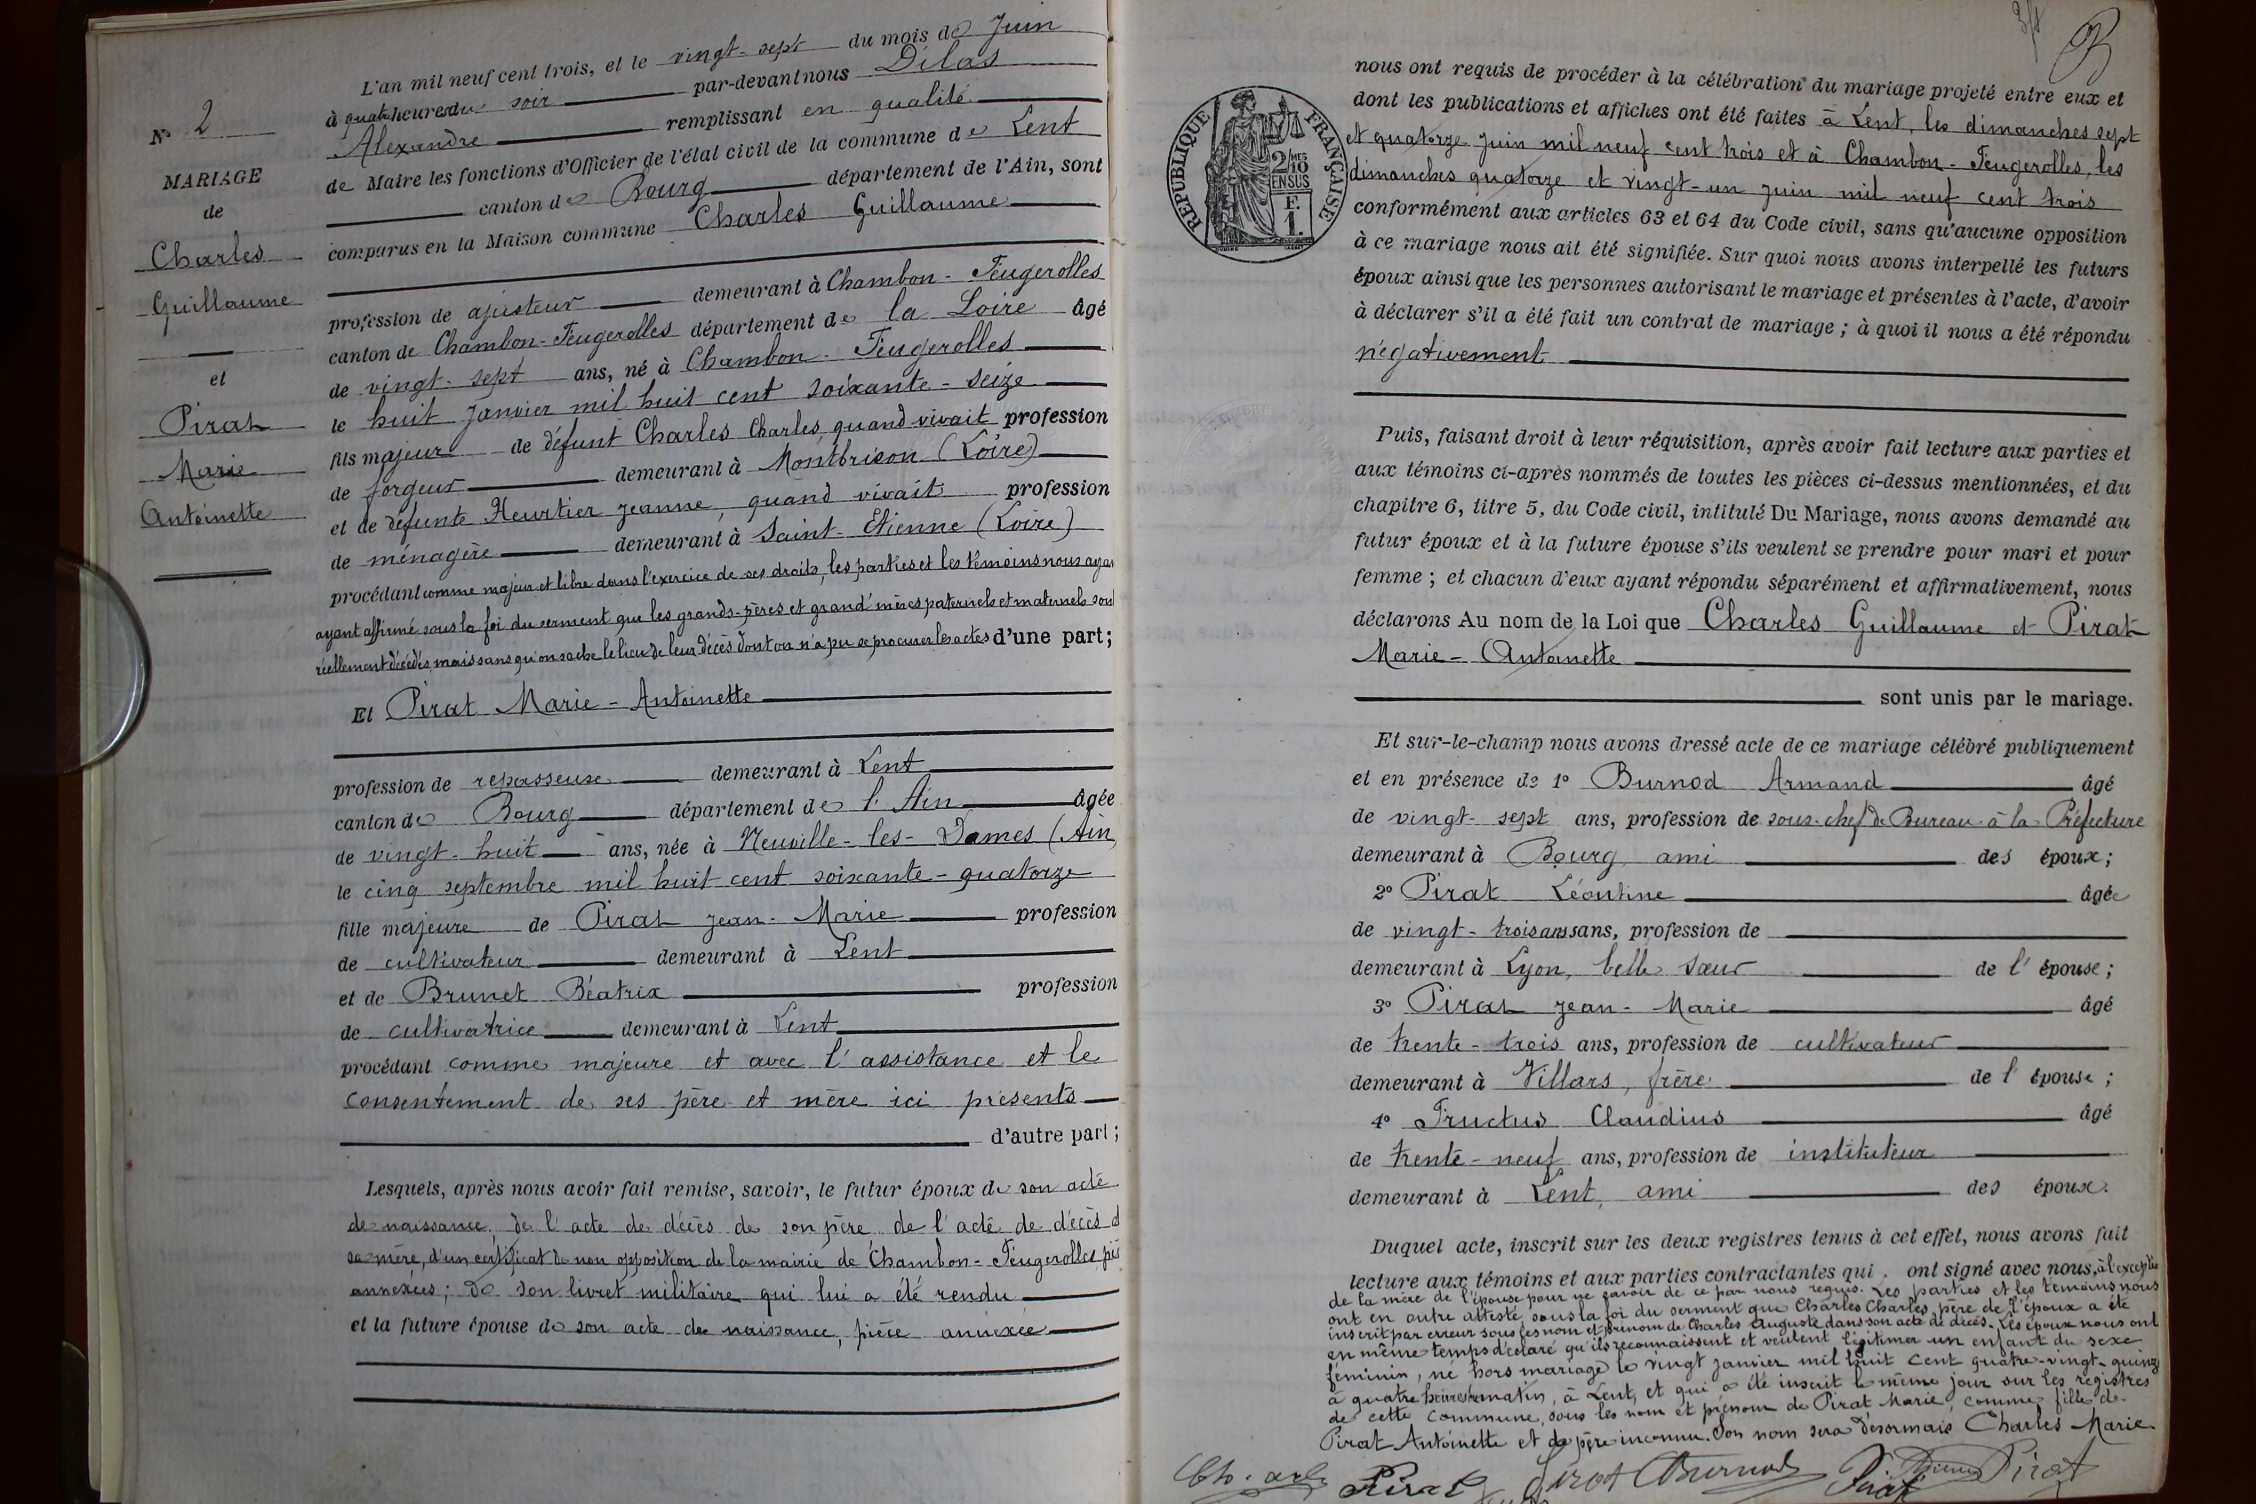 N° 2
MARIAGE
de
Charles
Guillaume
et
Pirat
Marie
Antoinette
L'an mil neuf cent trois, et le vingt-sept du mois de Juin
à quatre heures du soir par-devant nous Dilas
Alexandre remplissant en qualité
de Maire les fonctions d'Officier de l'état civil de la commune de Lent
canton de Bourg département de l'Ain, sont
comparus en la Maison commune Charles Guillaume
profession de ajusteur demeurant à Chambon-Feugerolles
canton de Chambon-Feugerolles département de la Loire âgé
de vingt-sept ans, né à Chambon-Feugerolles
le huit janvier mil huit cent soixante-seize
fils majeur de défunt Charles Charles, quand vivait profession
de forgeur demeurant à Montbrison (Loire)
et de défunte Heurtier Jeanne, quand vivait profession
de ménagère demeurant à Saint-Etienne (Loire)
procédant comme majeur et libre dans l'exercice de ses droits, les parties et les témoins nous ayant
ayant affirmé sous la foi du serment que les grands-pères et grand'mères paternels et maternels sont
réellement décédés, mais sans qu'on sache le lieu de leur décès dont on n'a pu se procurer les actes d'une part;
Et Pirat Marie-Antoinette
profession de repasseuse demeurant à Lent
canton de Bourg département de l'Ain âgée
de vingt-huit ans, née à Neuville-les-Dames (Ain
le cinq septembre mil huit cent soixante-quatorze
fille majeure de Pirat Jean-Marie profession
de cultivateur demeurant à Lent
et de Brunet Béatrix profession
de cultivatrice demeurant à Lent
procédant comme majeure et avec l'assistance et le
consentement de ses père et mère ici présents
d'autre part;
Lesquels, après nous avoir fait remise, savoir, le futur époux de son acte
de naissance, de l'acte de décès de son père, de l'acte de décès d
sa mère, d'un certificat de non opposition de la mairie de Chambon-Feugerolles piè
annexées; de son livret militaire qui lui a été rendu
et la future épouse de son acte de naissance, pièce annexée
3/4
RÉPUBLIQUE FRANÇAISE
2/10 MES
EN SUS
F.
1.
nous ont requis de procéder à la célébration du mariage projeté entre eux et
dont les publications et affiches ont été faites à Lent, les dimanches sept
et quatorze Juin mil neuf cent trois et à Chambon-Feugerolles, les
dimanches quatorze et vingt-un juin mil neuf cent trois
conformément aux articles 63 et 64 du Code civil, sans qu'aucune opposition
à ce mariage nous ait été signifiée. Sur quoi nous avons interpellé les futurs
époux ainsi que les personnes autorisant le mariage et présentes à l'acte, d'avoir
à déclarer s'il a été fait un contrat de mariage; à quoi il nous a été répondu
négativement
Puis, faisant droit à leur réquisition, après avoir fait lecture aux parties et
aux témoins ci-après nommés de toutes les pièces ci-dessus mentionnées, et du
chapitre 6, titre 5, du Code civil, intitulé Du Mariage, nous avons demandé au
futur époux et à la future épouse s'ils veulent se prendre pour mari et pour
femme; et chacun d'eux ayant répondu séparément et affirmativement, nous
déclarons Au nom de la Loi que Charles Guillaume et Pirat
Marie-Antoinette
sont unis par le mariage.
Et sur-le-champ nous avons dressé acte de ce mariage célébré publiquement
et en présence de 1° Burnod Armand âgé
de vingt-sept ans, profession de sous-chef de Bureau à la Préfecture
demeurant à Bourg ami des époux;
2° Pirat Léontine âgée
de vingt-trois ans ans, profession de
demeurant à Lyon, belle sœur de l'épouse;
3° Pirat Jean-Marie âgé
de trente-trois ans, profession de cultivateur
demeurant à Villars, frère de l'épouse;
4° Fructus Claudius âgé
de trente-neuf ans, profession de instituteur
demeurant à Lent, ami des époux.
Duquel acte, inscrit sur les deux registres tenus à cet effet, nous avons fait
lecture aux témoins et aux parties contractantes qui ont signé avec nous, à l'exception
de la mère de l'épouse pour ne savoir de ce par nous requis. Les parties et les témoins nous
ont en outre attesté sous la foi du serment que Charles Charles, père de l'époux a été
inscrit par erreur sous les nom et prénom de Charles Auguste dans son acte de décès. Les époux nous ont
en même temps déclaré qu'ils reconnaissent et veulent légitimer un enfant du sexe
féminin, né hors mariage le vingt janvier mil huit cent quatre-vingt-quinze
à quatre heures du matin, à Lent, et qui a été inscrit le même jour sur les registres
de cette commune, sous les nom et prénom de Pirat Marie, comme fille de
Pirat Antoinette et de père inconnu. Son nom sera désormais Charles Marie.
Charles Pirat Pirat Burnod Pirat Pirat